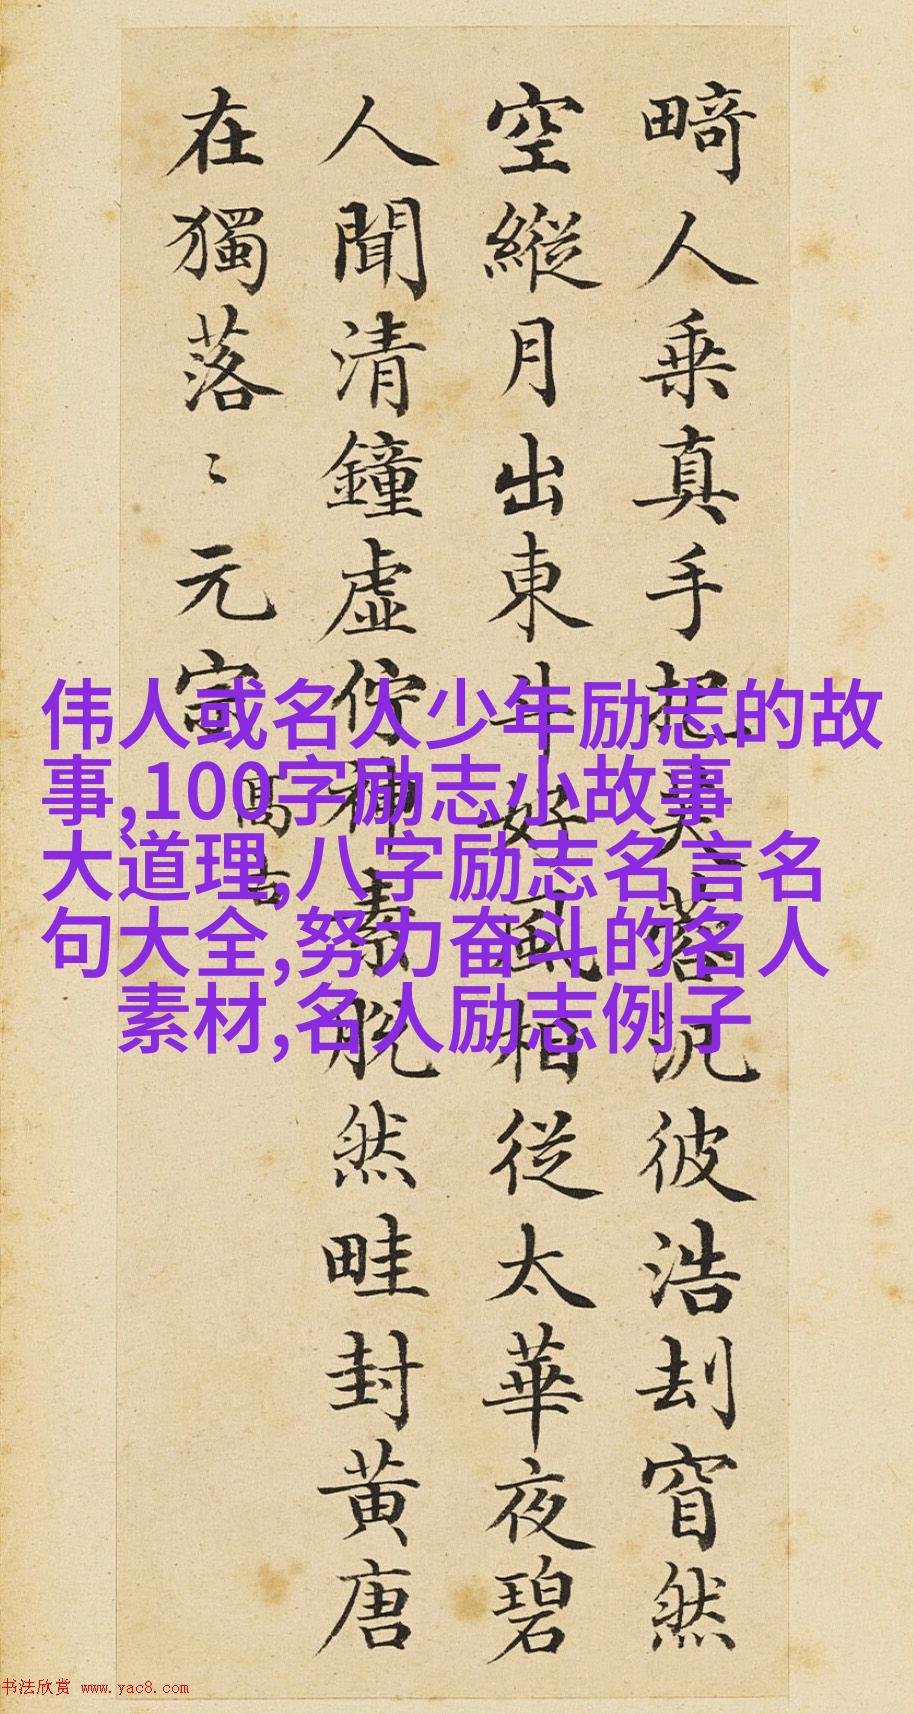 畸人乗真手把芙蓉汎彼浩刦窅然
空縱月出東斗好風相從太華夜碧
人聞清鐘虛佇神素脫然畦封黄唐
在獨落〻元宗
高古
伟人或名人少年励志的故
事,100字励志小故事
大道理,八字励志名言名
句大全,努力奋斗的名人
素材,名人励志例子
书法欣赏 www.yac8.com